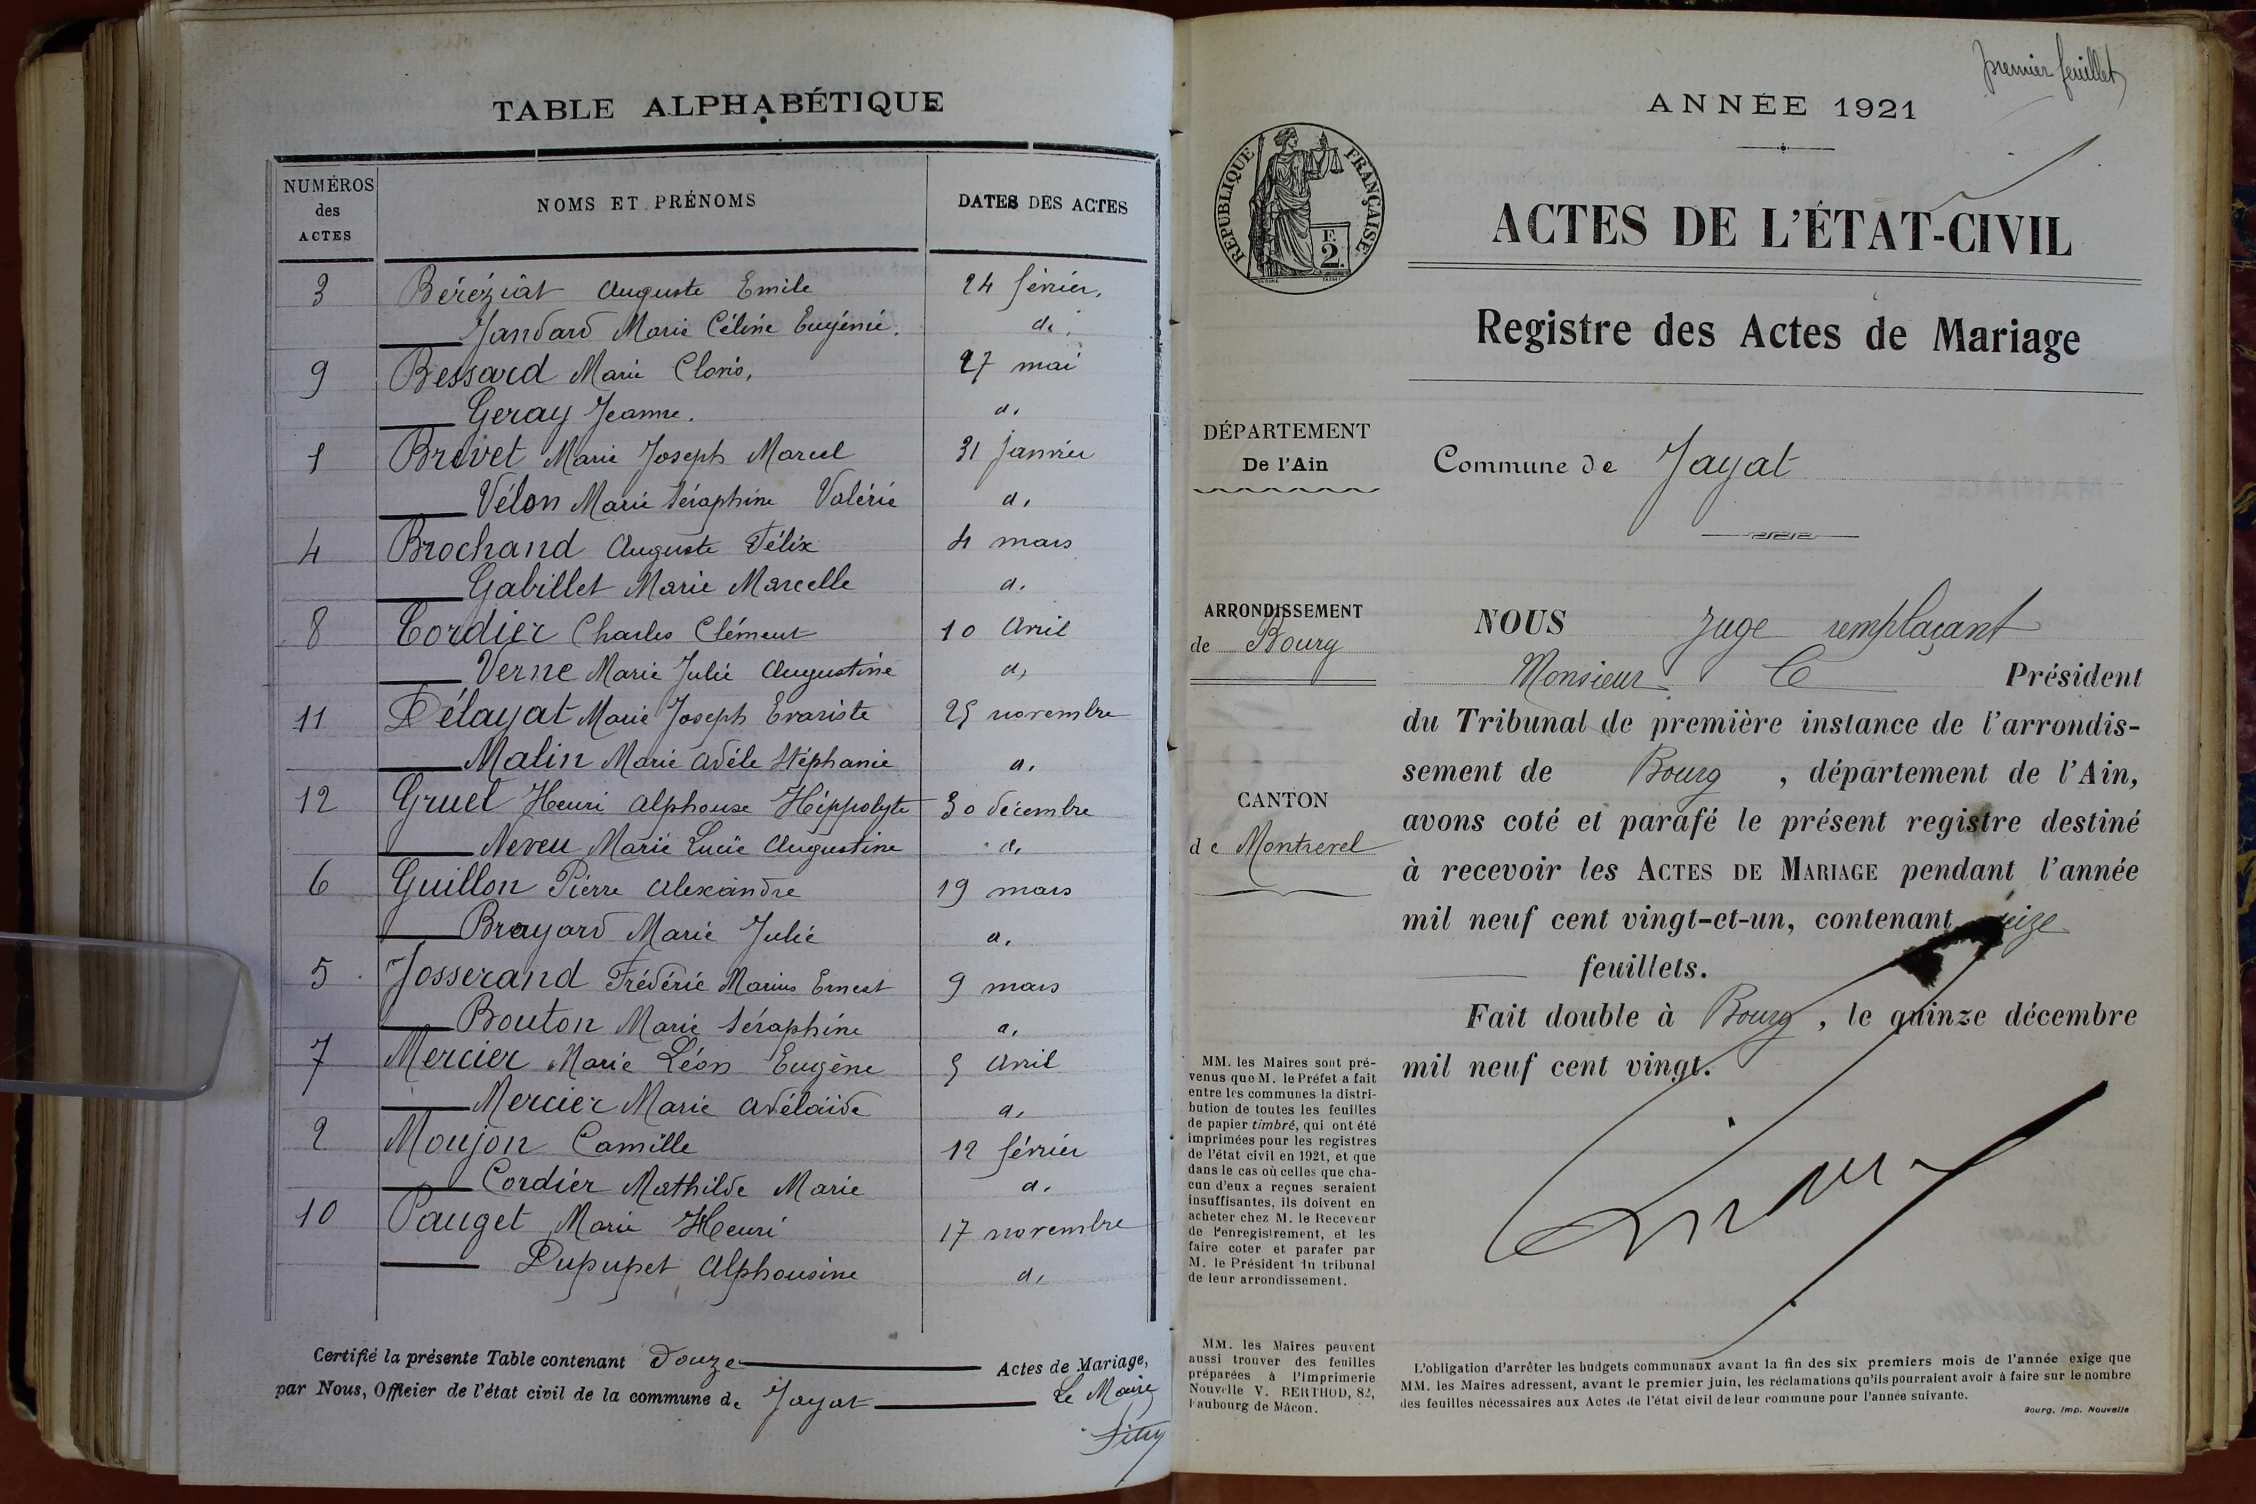 TABLE ALPHABÉTIQUE
NUMÉROS des ACTES NOMS ET PRÉNOMS DATES DES ACTES
3 Béréziat Auguste Emile 24 février,
Jandard Marie Céline Eugénie. d.
9 Bessard Marie Clovis, 27 mai
Geray Jeanne. d.
1 Brevet Marie Joseph Marcel 31 janvier
Vélon Marie Séraphine Valérie d.
4 Brochand Auguste Félix 4 mars
Gabillet Marie Marcelle d.
8 Cordier Charles Clément 10 Avril
Verne Marie Julie Augustine d,
11 Délayat Marie Joseph Evariste 25 novembre
Malin Marie Adéle Stéphanie d.
12 Gruel Henri Alphonse Hippolyte 30 décembre
Neveu Marie Lucie Augustine d.
6 Guillon Pierre Alexandre 19 mars
Brayard Marie Julie d.
5 Josserand Frédéric Marius Ernest 9 mars
Bouton Marie Séraphine d.
7 Mercier Marie Léon Eugène 5 Avril
Mercier Marie Adélaïde d.
2 Moujon Camille 12 février
Cordier Mathilde Marie d.
10 Pauget Marie Henri 17 novembre
Dupupet Alphonsine d.
Certifié la présente Table contenant Douze Actes de Mariage,
par Nous, Officier de l'état civil de la commune de Jayat Le Maire
premier feuillet
ANNÉE 1921
RÉPUBLIQUE FRANÇAISE
F.
2.
ACTES DE L'ÉTAT-CIVIL
Registre des Actes de Mariage
DÉPARTEMENT
De l'Ain
Commune de Jayat
ARRONDISSEMENT
de Bourg
CANTON
de Montrevel
NOUS Juge remplaçant
Monsieur Le Président
du Tribunal de première instance de l'arrondis-
sement de Bourg, département de l'Ain,
avons coté et parafé le présent registre destiné
à recevoir les ACTES DE MARIAGE pendant l'année
mil neuf cent vingt-et-un, contenant
feuillets.
Fait double à Bourg, le quinze décembre
mil neuf cent vingt.
MM. les Maires sont pré-
venus que M. le Préfet a fait
entre les communes la distri-
bution de toutes les feuilles
de papier timbré, qui ont été
imprimées pour les registres
de l'état civil en 1921, et que
dans le cas où celles que cha-
cun d'eux a reçues seraient
insuffisantes, ils doivent en
acheter chez M. le Receveur
de l'enregistrement, et les
faire coter et parafer par
M. le Président du tribunal
de leur arrondissement.
MM. les Maires peuvent
aussi trouver des feuilles
préparées à l'Imprimerie
Nouvelle V. BERTHOD, 82,
Faubourg de Mâcon.
L'obligation d'arrêter les budgets communaux avant la fin des six premiers mois de l'année exige que
MM. les Maires adressent, avant le premier juin, les réclamations qu'ils pourraient avoir à faire sur le nombre
des feuilles nécessaires aux Actes de l'état civil de leur commune pour l'année suivante.
Bourg. Imp. Nouvelle